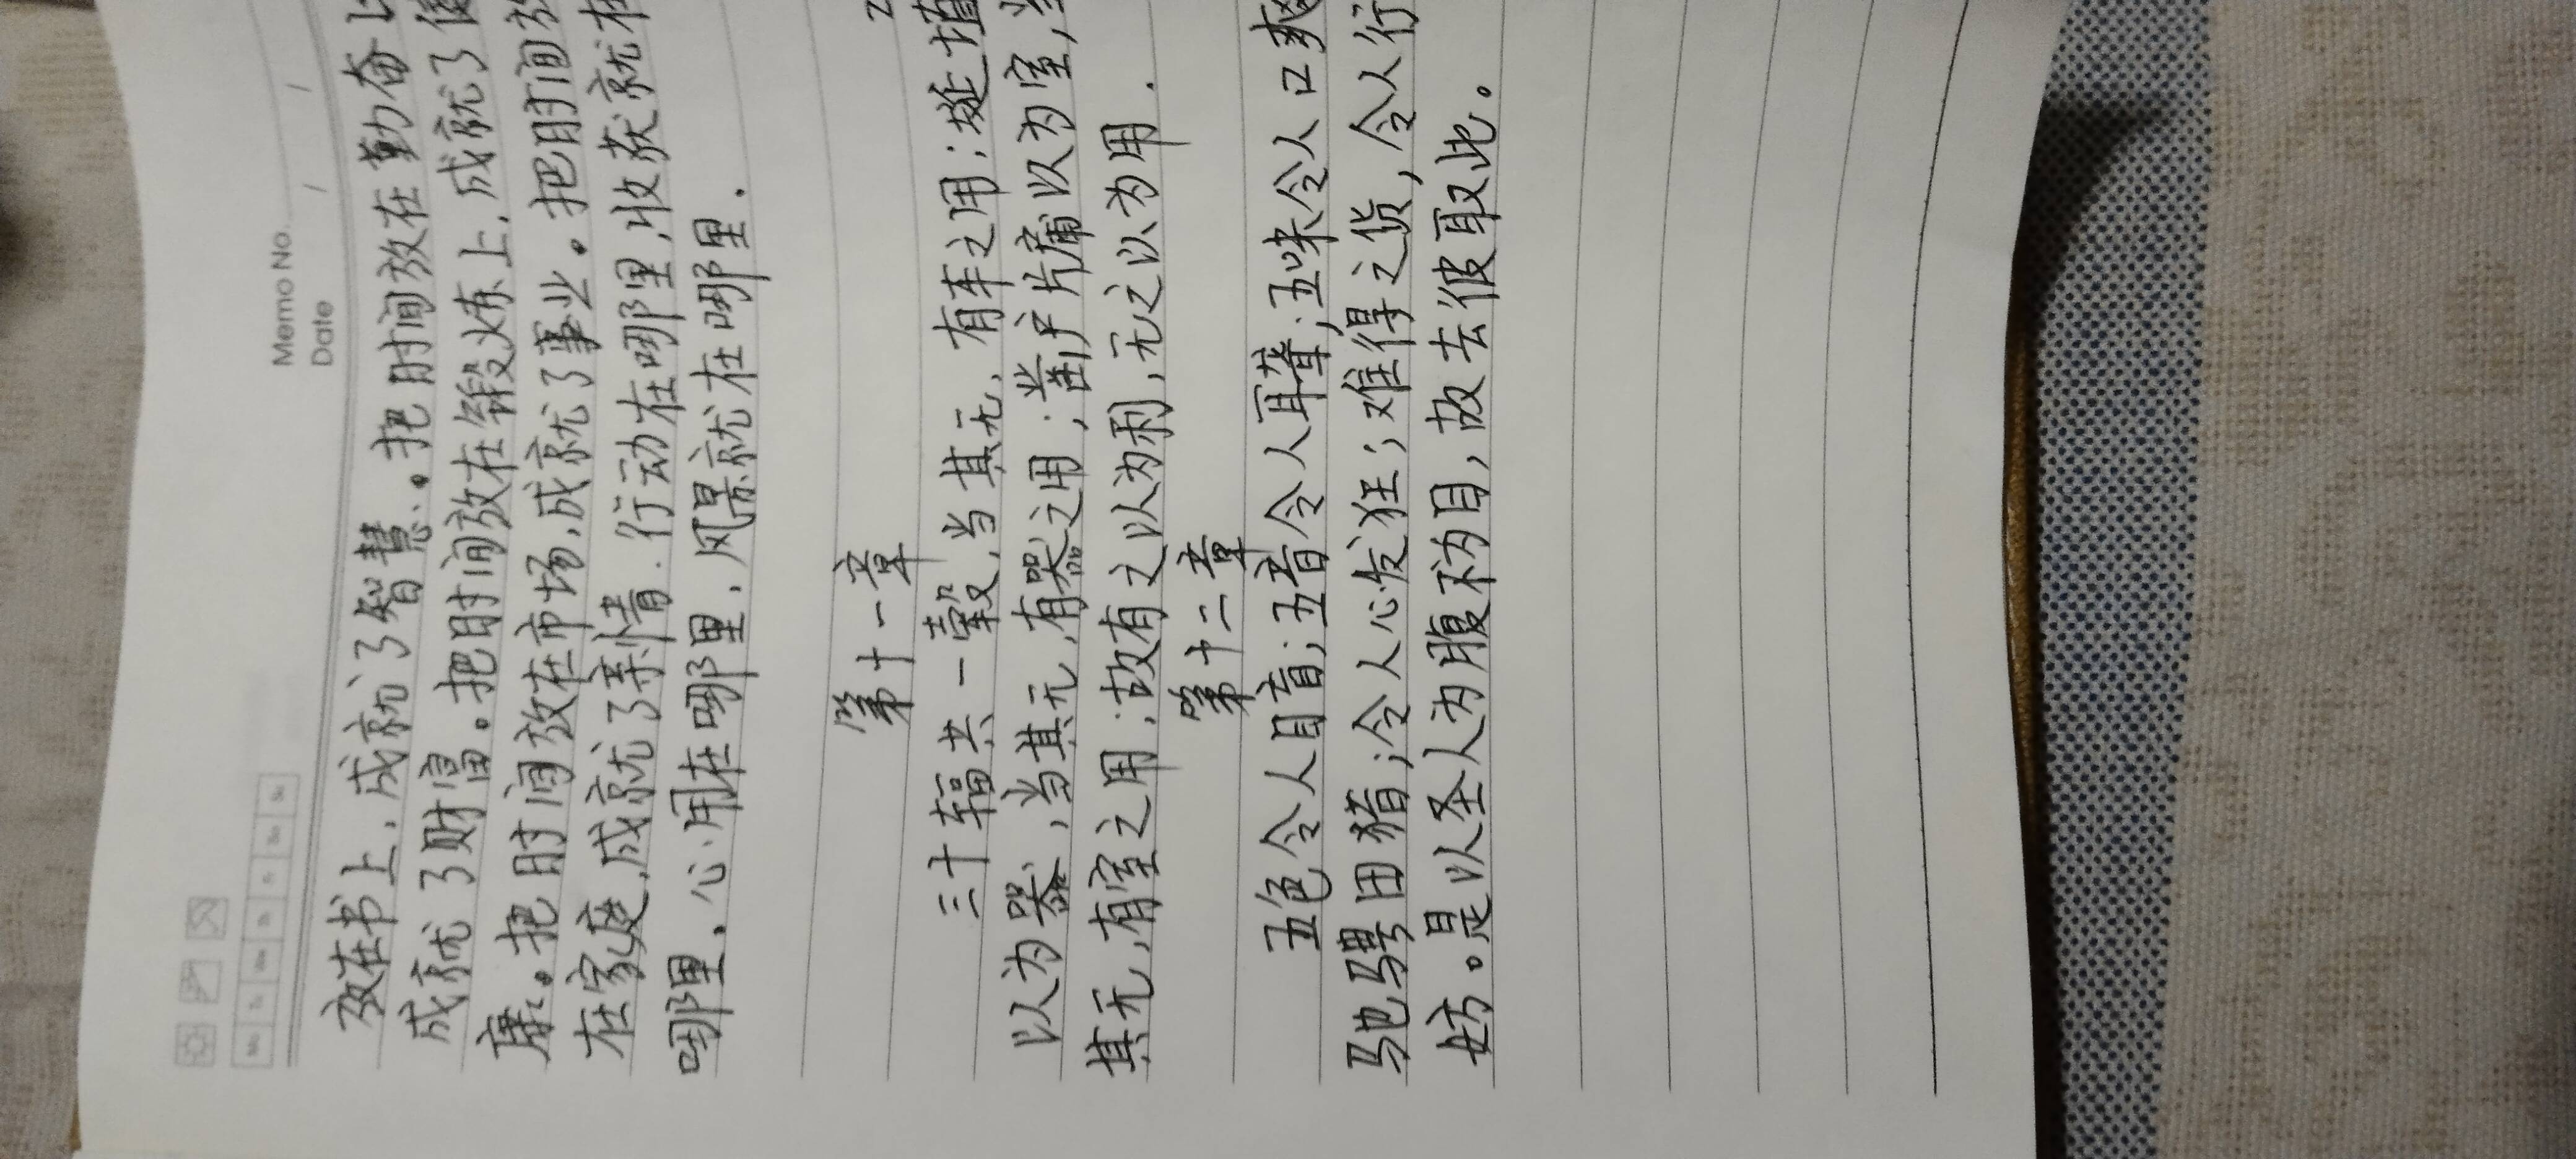 Memo No.
Date / /
放在书上，成就了智慧。把时间放在勤奋上
成就了财富。把时间放在锻炼上，成就了健
康。把时间放在市场，成就了事业。把时间放
在家庭，成就了亲情．行动在哪里，收获就在
哪里，心用在哪里，风景就在哪里．
第十一章
三十辐共一毂，当其无，有车之用；埏埴
以为器，当其无，有器之用；凿户片牖以为室，当
其无，有室之用；故有之以为利，无之以为用．
第十二章
五色令人目盲；五音令人耳聋；五味令人口爽
驰骋田猎；令人心发狂；难得之货，令人行
妨。是以圣人为腹不为目，故去彼取此。